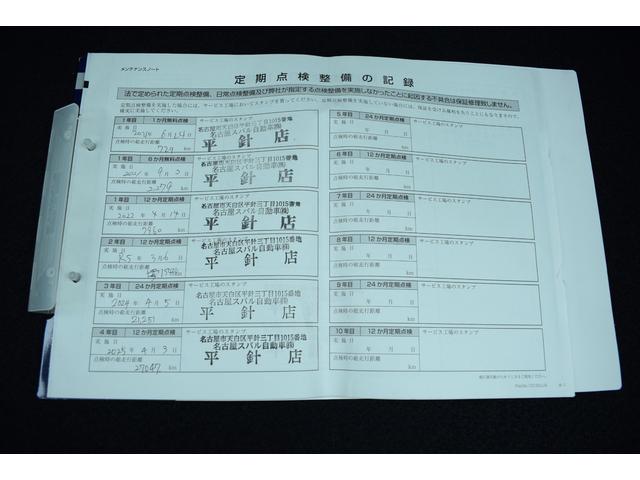 メンテナンスノート
定期点検整備の記録
法で定められた定期点検整備、日常点検整備及び弊社が指定する点検整備を実施しなかったことに起因する不具合は保証修理致しません。
1年目 1か月無料点検 サービス工場のスタンプ
実施日
2021年 6月15日
点検時の総走行距離
779 km
名古屋市天白区平針三丁目1015番地
名古屋スバル自動車㈱
平針店
1年目 6か月無料点検 サービス工場のスタンプ
実施日
年 9月 日
点検時の総走行距離
2,279 km
名古屋市天白区平針三丁目1015番地
名古屋スバル自動車㈱
平針店
1年目 12か月定期点検 サービス工場のスタンプ
実施日
2022年 4月14日
点検時の総走行距離
7960 km
名古屋市天白区平針三丁目1015番地
名古屋スバル自動車㈱
平針店
2年目 12か月定期点検 サービス工場のスタンプ
実施日
R5年 3月6日
点検時の総走行距離
km
名古屋市天白区平針三丁目1015番地
名古屋スバル自動車㈱
平針店
3年目 24か月定期点検 サービス工場のスタンプ
実施日
2024年 4月5日
点検時の総走行距離
21,251 km
名古屋市天白区平針三丁目1015番地
名古屋スバル自動車㈱
平針店
4年目 12か月定期点検 サービス工場のスタンプ
実施日
2025年 4月3日
点検時の総走行距離
27047 km
名古屋市天白区平針三丁目1015番地
名古屋スバル自動車㈱
平針店
5年目 24か月定期点検 サービス工場のスタンプ
実施日
年 月 日
点検時の総走行距離
km
6年目 12か月定期点検 サービス工場のスタンプ
実施日
年 月 日
点検時の総走行距離
km
7年目 24か月定期点検 サービス工場のスタンプ
実施日
年 月 日
点検時の総走行距離
km
8年目 12か月定期点検 サービス工場のスタンプ
実施日
年 月 日
点検時の総走行距離
km
9年目 24か月定期点検 サービス工場のスタンプ
実施日
年 月 日
点検時の総走行距離
km
10年目 12か月定期点検 サービス工場のスタンプ
実施日
年 月 日
点検時の総走行距離
km